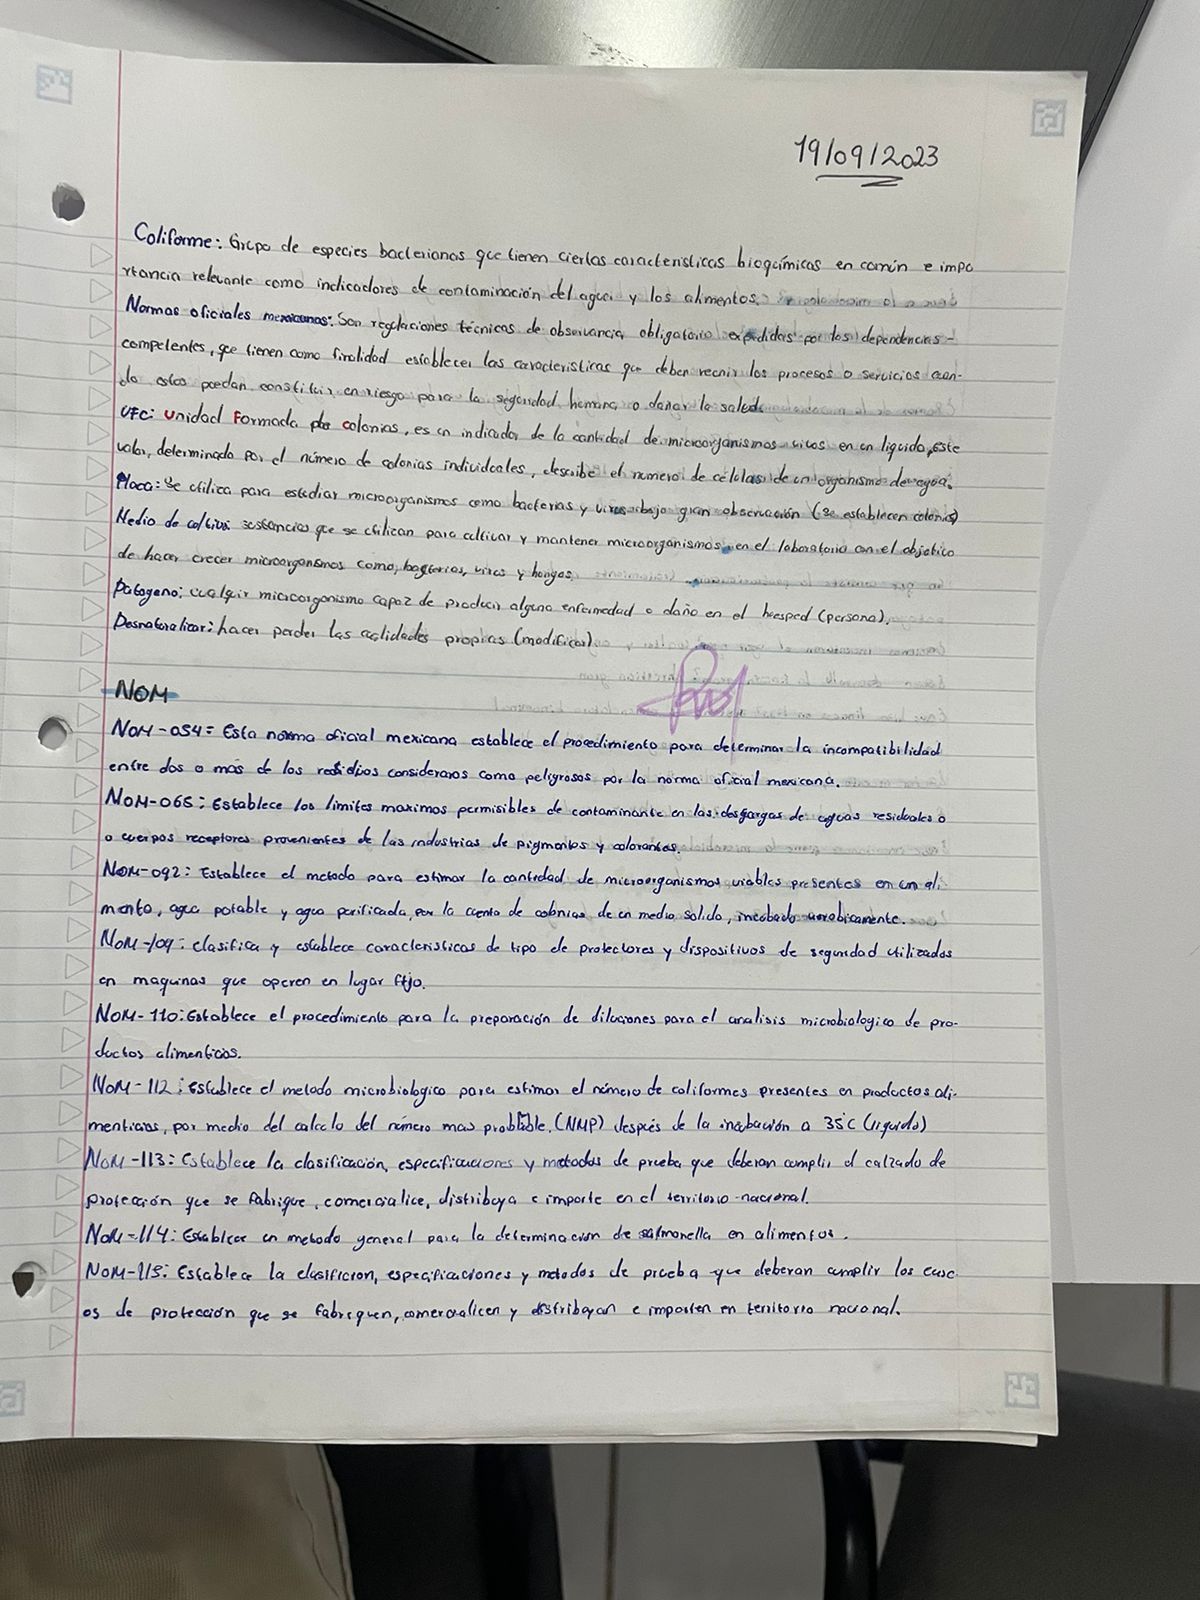 19/09/2023
Coliforme: Grupo de especies bacterianas que tienen ciertas caracteristicas bioquímicas en común e impo
rtancia relevante como indicadores de contaminación del agua y los alimentos.
Normas oficiales mexicanas: Son regulaciones técnicas de observancia obligatoria expedidas por las dependencias-
competentes, que tienen como finalidad establecer las caracteristicas que deben reunir los procesos o servicios cuan-
do estos puedan constituir un riesgo para la seguridad humana o dañar la salud.
UFC: Unidad Formada de colonias, es un indicador de la cantidad de microorganismos vivos en un liquido, este
valor, determinado por el número de colonias individuales, describe el numero de células de un organismo de agua.
Placa: Se utiliza para estudiar microorganismos como bacterias y virus bajo gran observación (se establecen colonias)
Medio de cultivo: sustancias que se utilizan para cultivar y mantener microorganismos en el laboratorio con el objetivo
de hacer crecer microorganismos como, bacterias, virus y hongos.
Patogeno: cualquir microorganismo capaz de producir alguna enfermedad o daño en el huesped (persona).
Desnaturalizar: hacer perder las cualidades propias (modificar)
NOM
NOM-054= Esta norma oficial mexicana establece el procedimiento para determinar la incompatibilidad
entre dos o más de los residuos consideraros como peligrosos por la norma oficial mexicana.
NOM-066: Establece los limites maximos permisibles de contaminante en las descargas de aguas residuales o
o cuerpos receptores provenientes de las industrias de pigmentos y colorantes.
NOM-092: Establece el metodo para estimar la cantidad de microorganismos viables presentes en un ali-
mento, agua potable y agua purificada, por la cuenta de colonias de un medio solido, incubado aerobicamente.
NOM-104: clasifica y establece caracteristicas de tipo de protectores y dispositivos de seguridad utilizados
en maquinas que operen en lugar fijo.
NOM-110: Establece el procedimiento para la preparación de diluciones para el analisis microbiologico de pro-
ductos alimenticios.
NOM-112: Establece el metodo microbiologico para estimar el número de coliformes presentes en productos ali-
menticios, por medio del calculo del número mas probable, (NMP) después de la incubación a 35°C (liquido)
NOM-113: Establece la clasificación, especificaciones y metodos de prueba que deberan cumplir el calzado de
protección que se fabrique, comercialice, distribuya e importe en el territorio nacional.
NOM-114: Establece un metodo general para la determinacion de salmonella en alimentos.
NOM-115: Establece la clasificion, especificaciones y metodos de prueba que deberan cumplir los casc-
os de protección que se fabriquen, comercialicen y distribuyan e importen en territorio nacional.